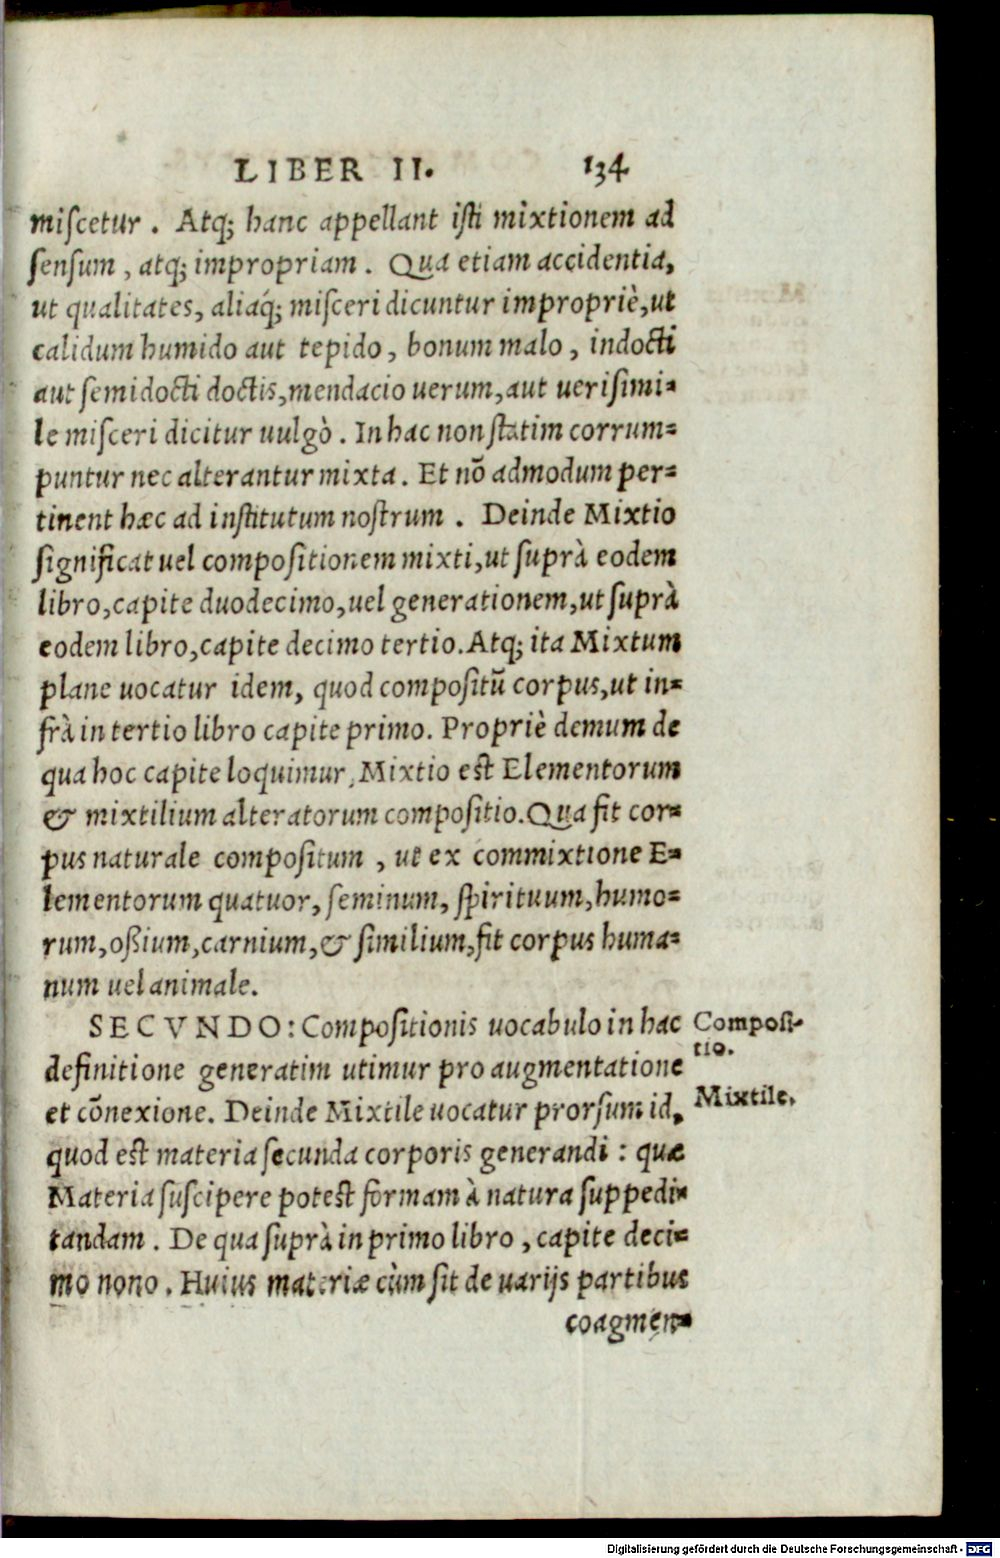 LIBER II. 134
miſcetur . Atq; hanc appellant iſti mixtionem ad
ſenſum , atq; impropriam . Qua etiam accidentia,
ut qualitates, aliaq́; miſceri dicuntur impropriè,ut
calidum humido aut tepido , bonum malo , indocti
aut ſemidocti doctis,mendacio uerum,aut ueriſimi-
le miſceri dicitur uulgò . In hac non ſtatim corrum-
puntur nec alterantur mixta . Et nō admodum per-
tinent hæc ad inſtitutum noſtrum . Deinde Mixtio
ſignificat uel compoſitionem mixti,ut ſuprà eodem
libro,capite duodecimo,uel generationem,ut ſuprà
eodem libro,capite decimo tertio.Atq; ita Mixtum
plane uocatur idem, quod compoſitū corpus,ut in-
frà in tertio libro capite primo. Propriè demum de
qua hoc capite loquimur, Mixtio eſt Elementorum
& mixtilium alteratorum compoſitio.Qua fit cor-
pus naturale compoſitum , ut ex commixtione E-
lementorum quatuor, ſeminum, ſpirituum,humo-
rum,oßium,carnium,& ſimilium,fit corpus huma-
num uel animale.
SECVNDO: Compoſitionis uocabulo in hac
Compoſi-
tio.
definitione generatim utimur pro augmentatione
et cōnexione. Deinde Mixtile uocatur prorſum id,
Mixtile.
quod eſt materia ſecunda corporis generandi : quæ
Materia ſuſcipere poteſt formam à natura ſuppedi-
tandam . De qua ſuprà in primo libro , capite deci-
mo nono . Huius materiæ cùm ſit de uarijs partibus
coagmen-
Digitalisierung gefördert durch die Deutsche Forschungsgemeinschaft - DFG